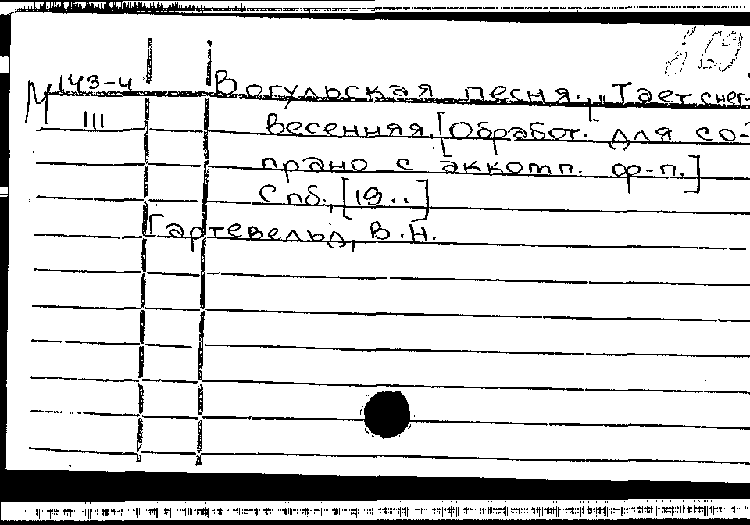 869
М 143-4 Вогульская песня. „Тает снег
III весенняя. [Обработ. для со-
прано с аккомп. ф-п.]
Спб., [19..]
Гартевельд, В.Н.